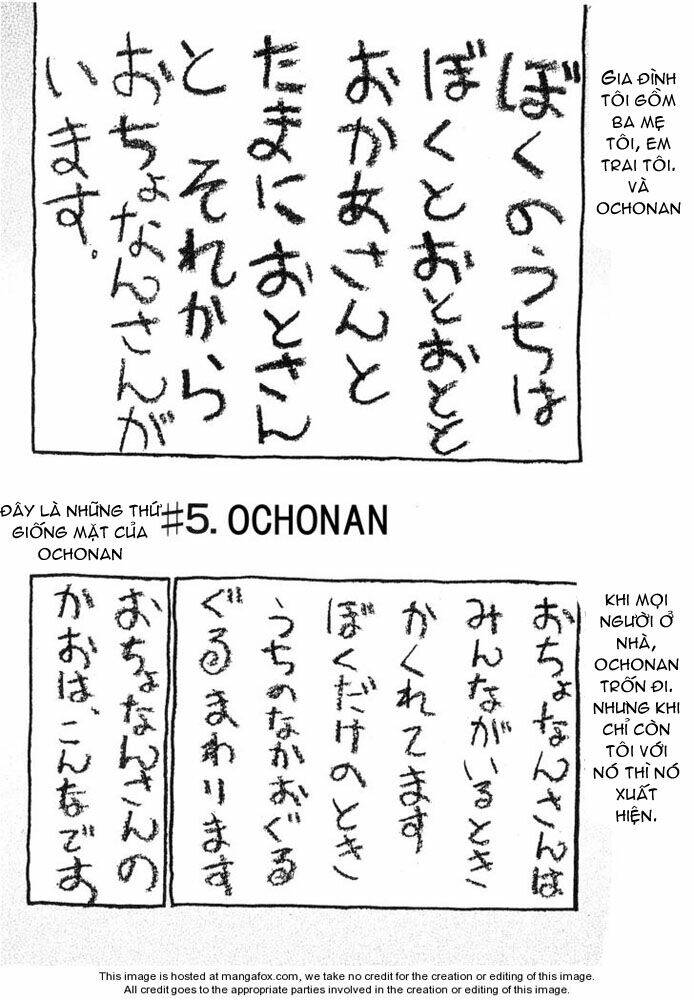 ぼくのうちは
ぼくとおとおとと
おかあさんと
たまにおとさん
と それから
おちょなんさんが
います。
GIA ĐÌNH
TÔI GỒM
BA MẸ
TÔI, EM
TRAI TÔI.
VÀ
OCHONAN
#5. OCHONAN
おちょなんさんは
みんながいるとき
かくれてます
ぼくだけのとき
うちのなかおぐる
ぐるまわります
KHI MỌI
NGƯỜI Ở
NHÀ,
OCHONAN
TRỐN ĐI.
NHƯNG KHI
CHỈ CÒN
TÔI VỚI
NÓ THÌ NÓ
XUẤT
HIỆN.
おちょなんさんの
かおは、こんなです
ĐÂY LÀ NHỮNG THỨ
GIỐNG MẶT CỦA
OCHONAN
This image is hosted at mangafox.com, we take no credit for the creation or editing of this image.
All credit goes to the appropriate parties involved in the creation or editing of this image.